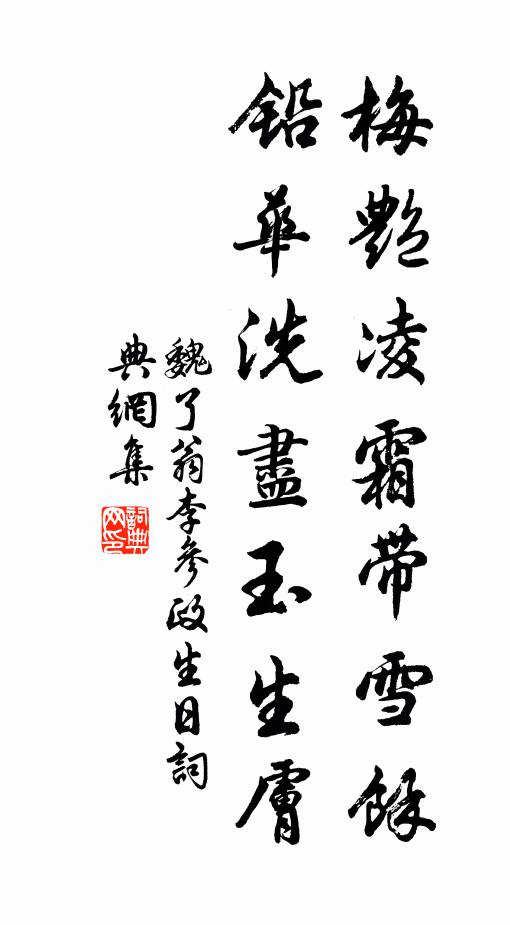 梅艷凌霜帶雪餘
鉛華洗盡玉生膚
魏了翁李參政生日詞
典網集
詞典網印